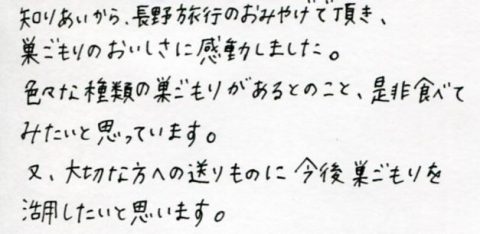 知りあいから、長野旅行のおみやげで頂き、
巣ごもりのおいしさに感動しました。
色々な種類の巣ごもりがあるとのこと、是非食べて
みたいと思っています。
又、大切な方への送りものに今後巣ごもりを
活用したいと思います。